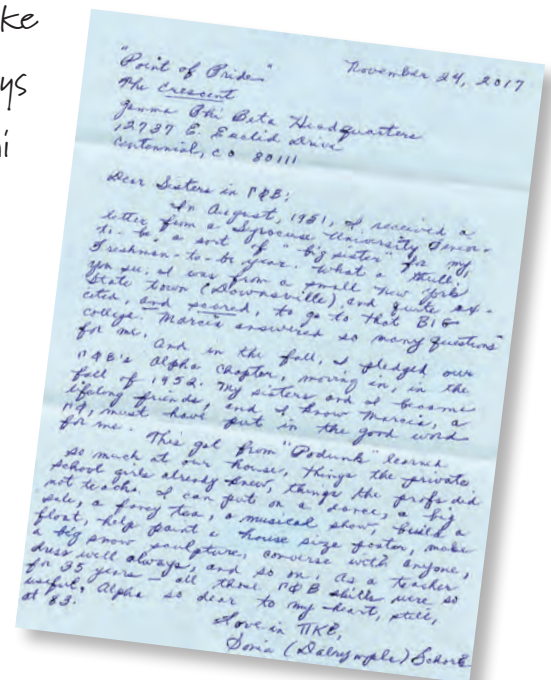 ke
ys
ni
November 24, 2017
"Point of Pride"
The Crescent
Gamma Phi Beta Headquarters
12737 E. Euclid Drive
Centennial, CO 80111
Dear Sisters in ΓΦΒ:
In August, 1951, I received a
letter from a Syracuse University Senior-
to-be a sort of "big sister" for my
Freshman-to-be year. What a thrill.
You see, I was from a small New York
State town (Downsville), and quite ex-
cited, and scared, to go to that BIG
college. Marcia answered so many questions
for me.
And in the fall, I pledged our
ΓΦΒ's Alpha Chapter, moving in, in the
fall of 1952. My sisters and I became
lifelong friends, and I know Marcia, a
ΓΦ, must have put in the good word
for me.
This gal from "Podunk" learned
so much at our house, things the private
school girls already knew, things the profs did
not teach. I can put on a dance, a big
sale, a fancy tea, a musical show, build a
float, help paint a house size poster, make
a big snow sculpture, converse with anyone,
dress well always, and so on. As a teacher
for 35 years — all those ΓΦΒ skills were so
useful. Alpha so dear to my heart, still,
at 83.
Love in ΠΚΕ,
Sonia (Dalrymple)